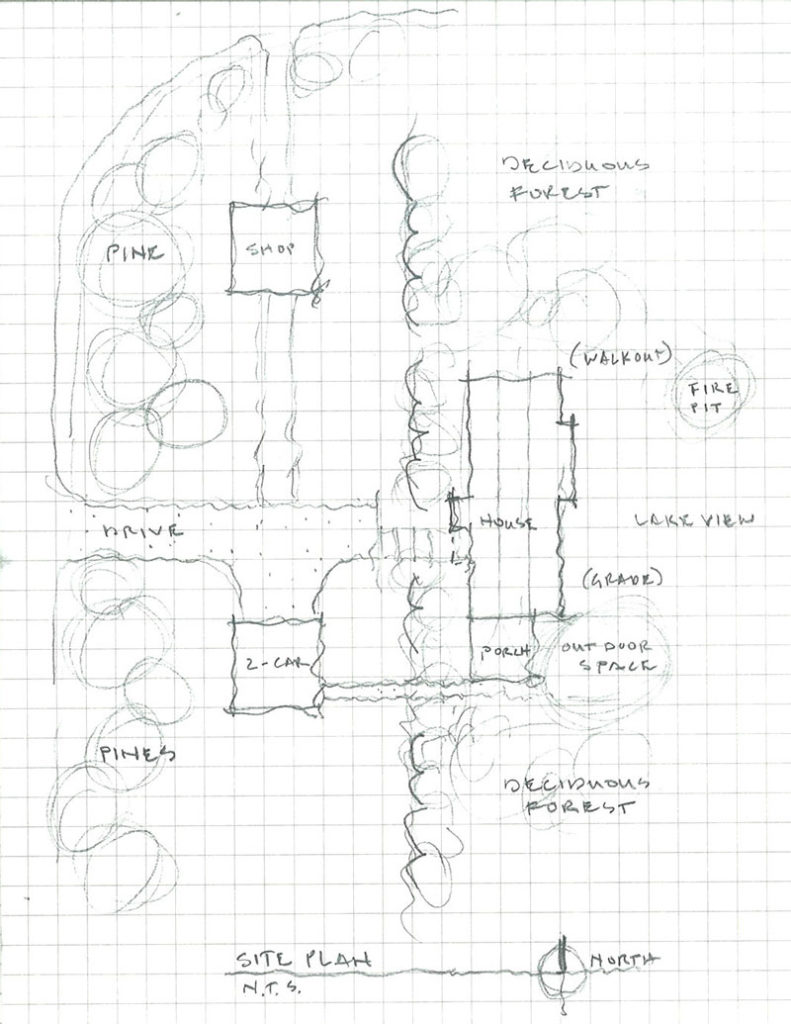 DECIDUOUS
FOREST
PINE
SHOP
(WALKOUT)
FIRE
PIT
DRIVE
HOUSE
LAKE VIEW
(GRADE)
2-CAR
PORCH
OUTDOOR
SPACE
PINES
DECIDUOUS
FOREST
SITE PLAN
NORTH
N.T.S.